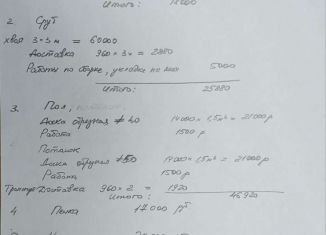 Итого: 
2 Сруб
хвоя 3×3 м = 60000
Доставка 960 × 3ч = 2880
Работы по сборке, укладка на мох 5000
Итого: 25880
3. Пол,
Доска отрезная № 40 14000 × 1,5 м³ = 21000 р
Работа 1500 р
Потолок
Доска 50 14000 × 1,5 м³ = 21000 р
Работа 1500 р
Доставка 960 × 2 = 1920
Итого: 46920
4 Печка 17000 р